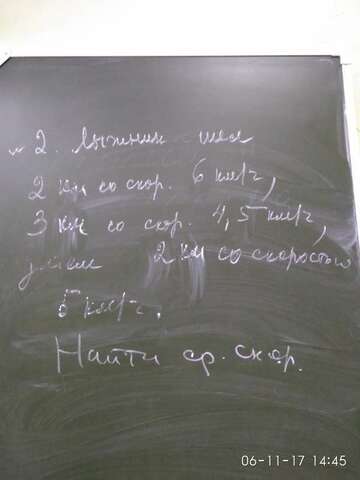 №2. Лыжник шел
2 км со скор. 6 км/ч,
3 км со скор. 4,5 км/ч,
2 км со скоростью
5 км/ч.
Найти ср. скор.
06-11-17 14:45